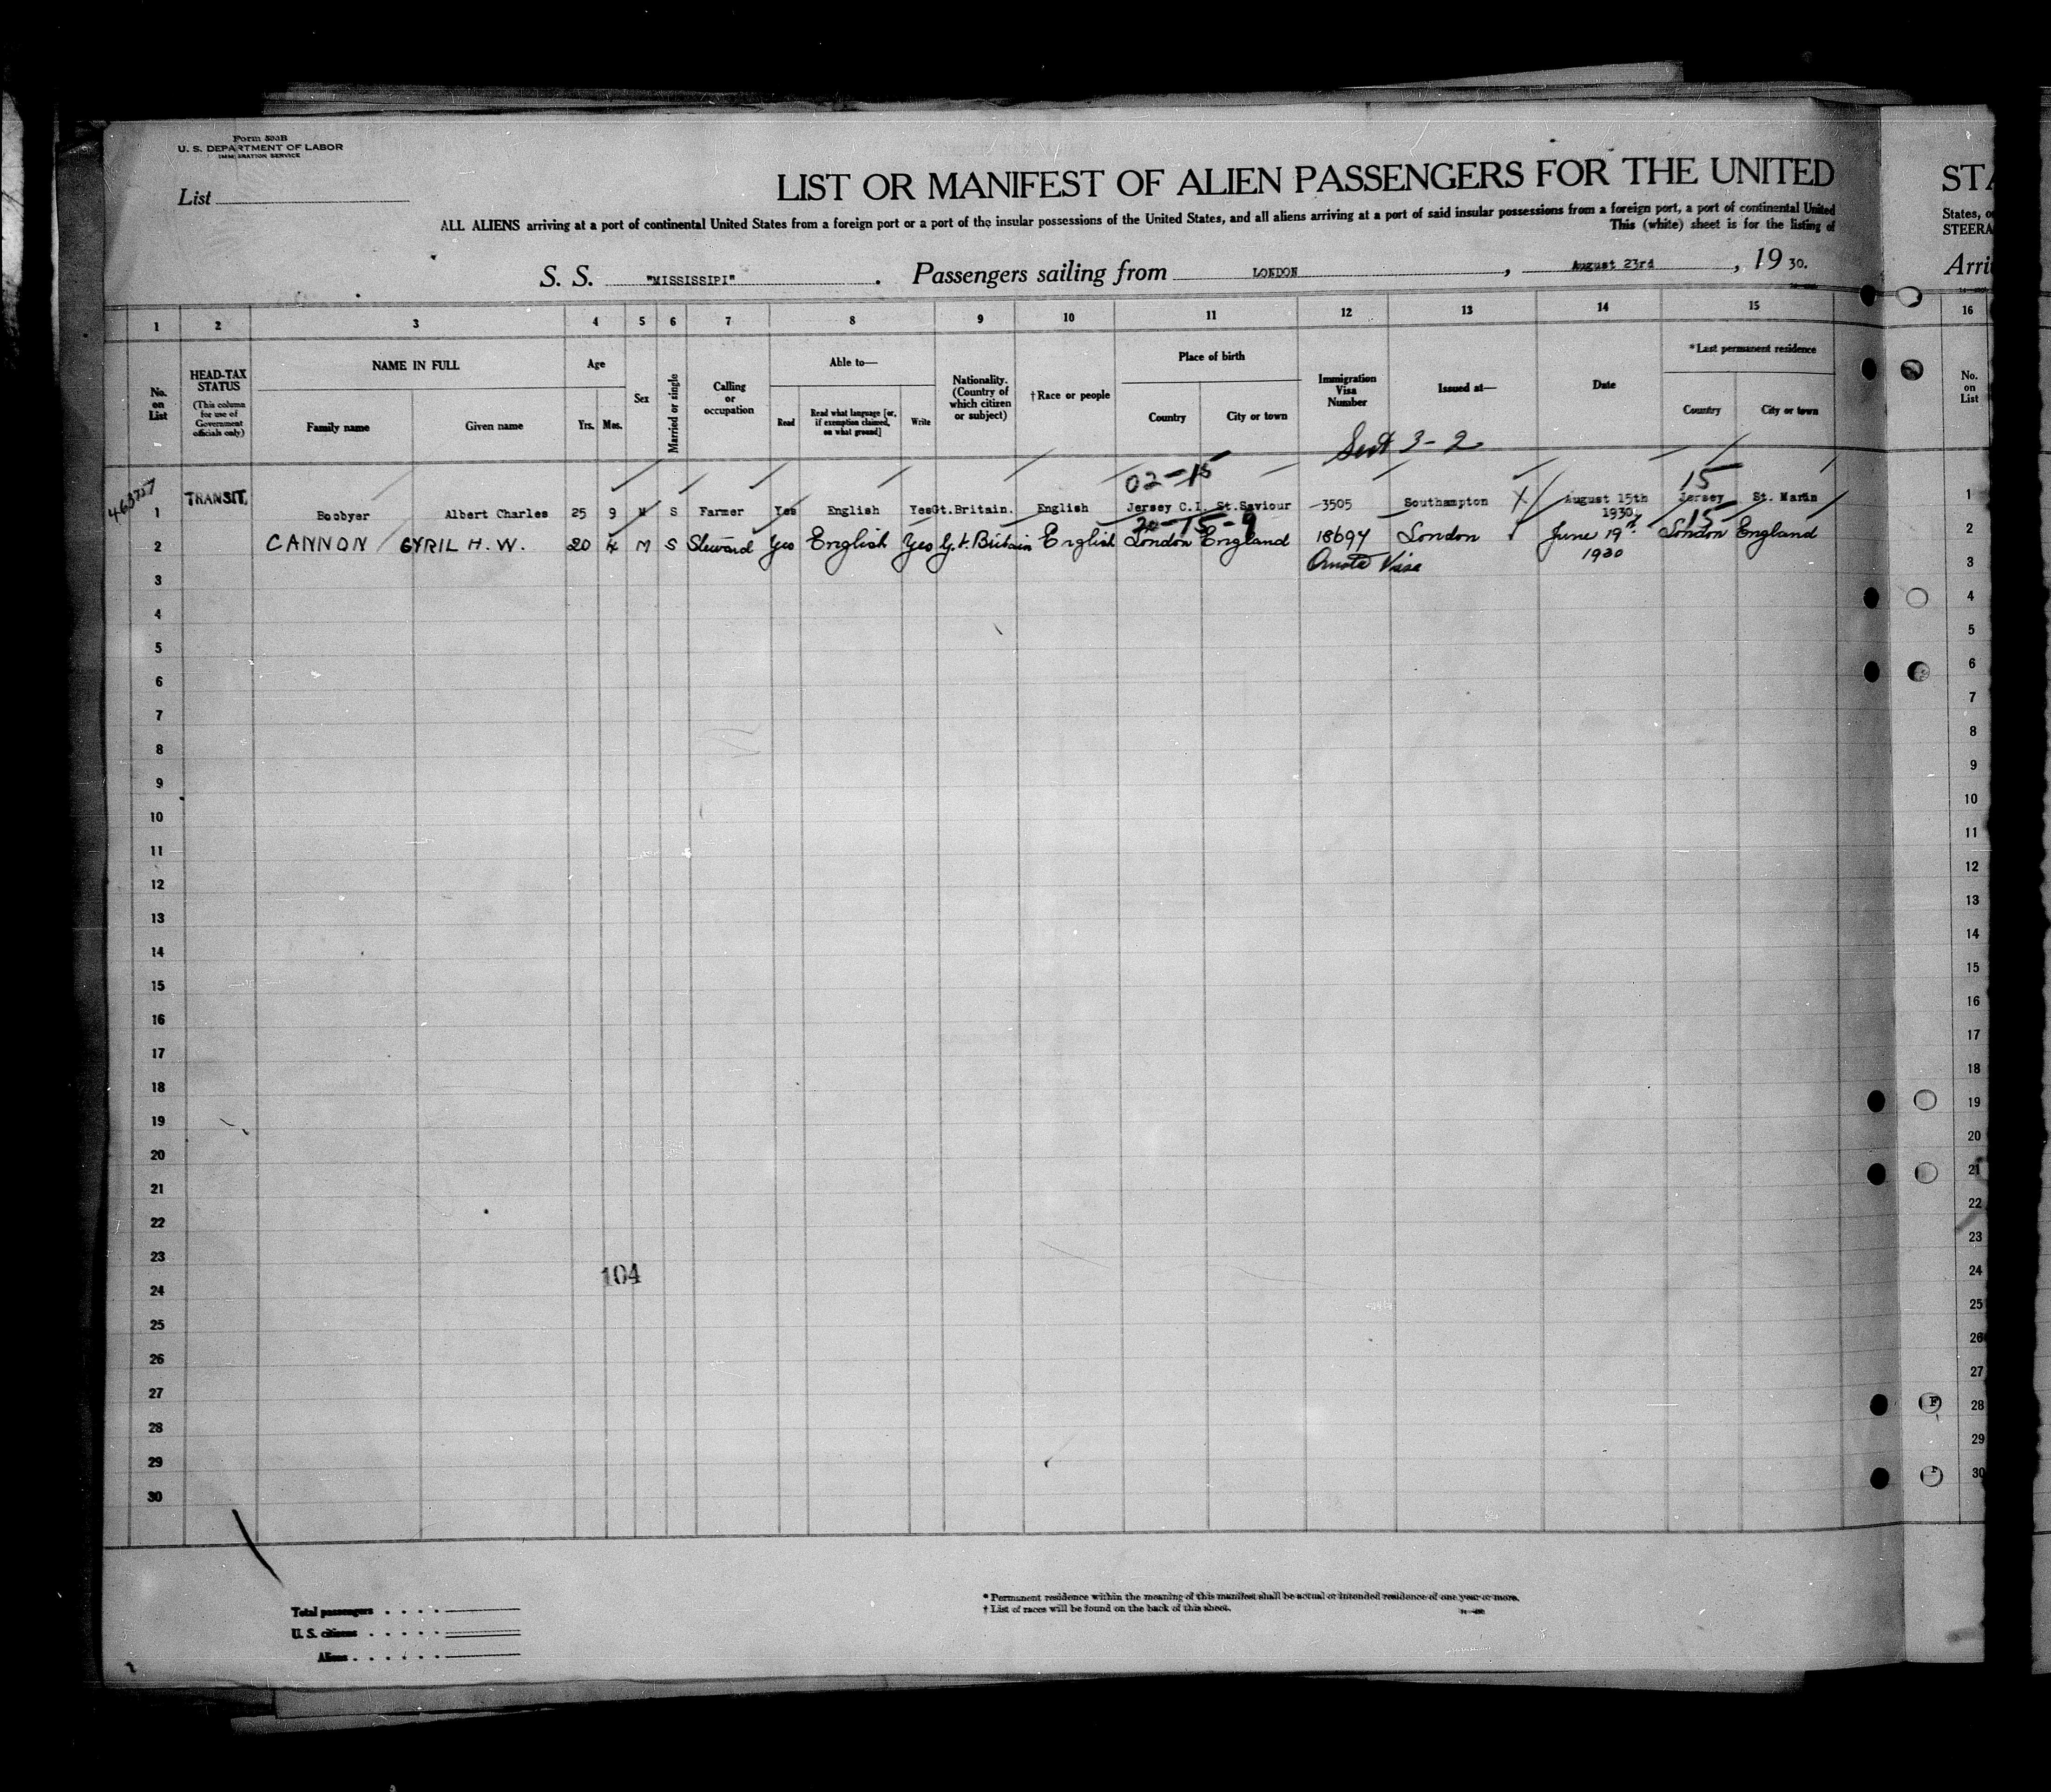 Form 500B
U. S. DEPARTMENT OF LABOR
IMMIGRATION SERVICE
List
LIST OR MANIFEST OF ALIEN PASSENGERS FOR THE UNITED
STA
ALL ALIENS arriving at a port of continental United States from a foreign port or a port of the insular possessions of the United States, and all aliens arriving at a port of said insular possessions from a foreign port, a port of continental United
States, o
This (white) sheet is for the listing of
STEERA
S. S. "MISSISSIPI". Passengers sailing from LONDON, August 23rd, 19 30.
Arri
1 2 3 4 5 6 7 8 9 10 11 12 13 14 15 16
No. on List
HEAD-TAX STATUS
(This column for use of Government officials only)
NAME IN FULL
Family name Given name
Age
Yrs. Mos.
Sex
Married or single
Calling or occupation
Able to—
Read
Read what language [or, if exemption claimed, on what ground]
Write
Nationality. (Country of which citizen or subject)
†Race or people
Place of birth
Country City or town
Immigration Visa Number
Issued at—
Date
*Last permanent residence
Country City or town
No. on List
3-2
02-15 15
463757
1 TRANSIT. Boobyer Albert Charles 25 9 M S Farmer Yes English Yes Gt.Britain. English Jersey C.I. St.Saviour 3505 Southampton X August 15th 1930 Jersey St. Martin 1
20-15-9 15
2 CANNON CYRIL H. W. 20 4 M S Steward Yes English Yes Gt. Britain English London England 18697 London June 19th 1930 London England 2
Visa
3 3
4 4
5 5
6 6
7 7
8 8
9 9
10 10
11 11
12 12
13 13
14 14
15 15
16 16
17 17
18 18
19 19
20 20
21 21
22 22
23 23
104
24 24
25 25
26 26
27 27
28 28
29 29
30 30
Total passengers
U. S. citizens
Aliens
* Permanent residence within the meaning of this manifest shall be actual or intended residence of one year or more.
† List of races will be found on the back of this sheet.